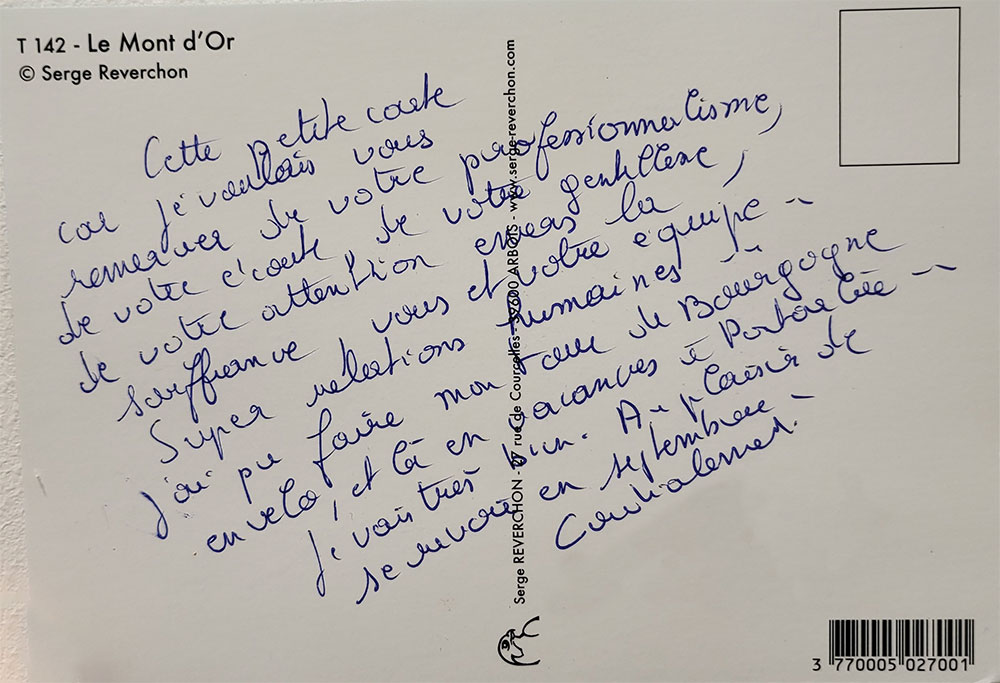 T 142 - Le Mont d'Or
© Serge Reverchon
Cette petite carte
car je voulais vous
remercier de votre professionnalisme,
de votre écoute de votre gentillesse,
de votre attention envers la
souffrance vous et votre équipe -
Super relations humaines
j'ai pu faire mon tour de Bourgogne
en velo, et là en vacances à -
je vais très bien. Au plaisir de
se revoir en septembre -
Cordialement.
Serge REVERCHON - 27 rue de Courcelles - 39600 ARBOIS - www.serge-reverchon.com
3 770005 027001